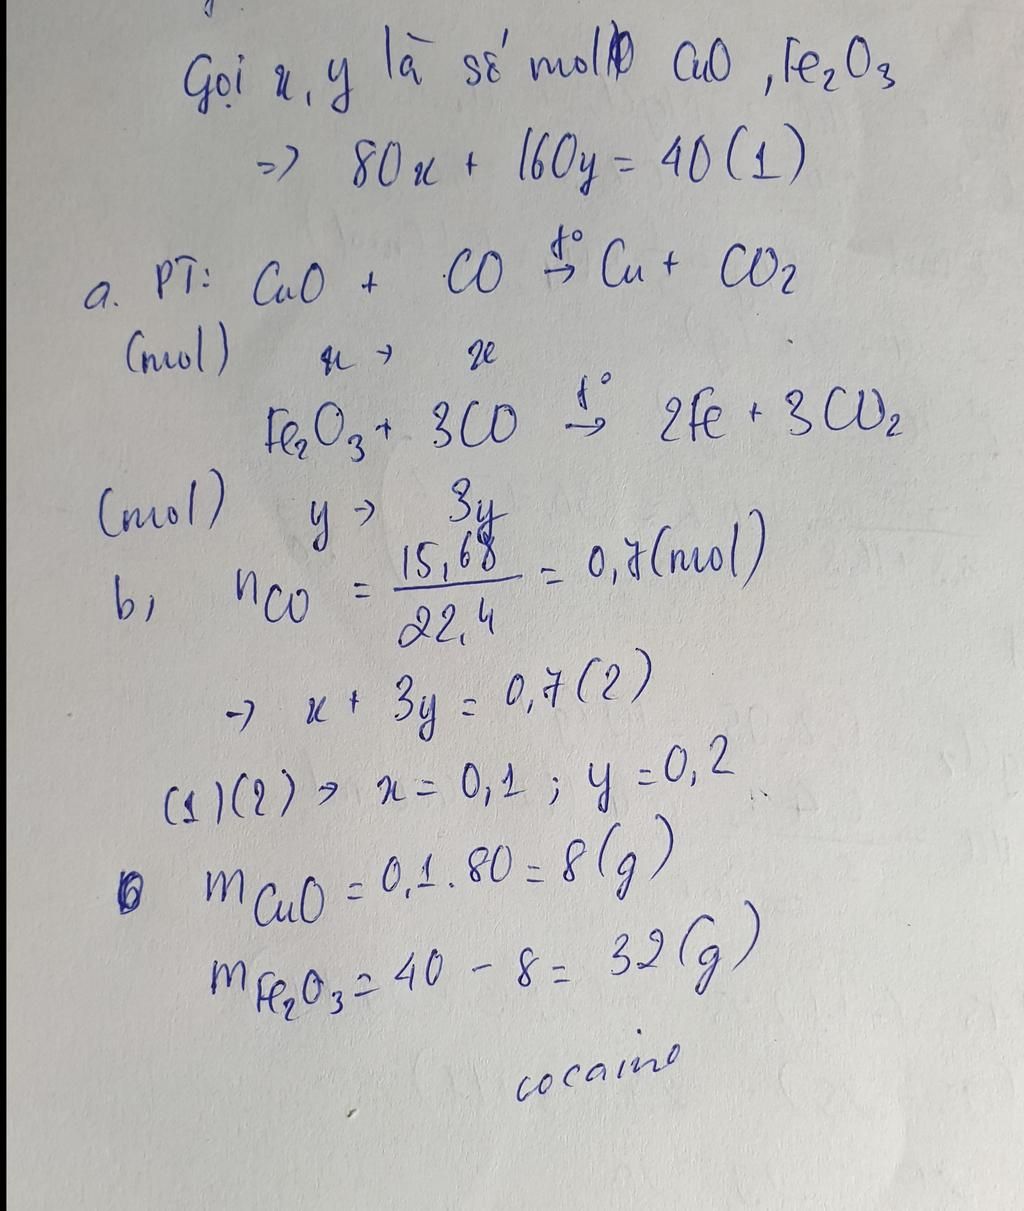 Gọi x, y là số mol CuO, Fe₂O₃
=> 80x + 160y = 40 (1)
a. PT: CuO + CO →t° Cu + CO₂
(mol) x → x
Fe₂O₃ + 3CO →t° 2Fe + 3CO₂
(mol) y → 3y
b, nCO = 15,68/22,4 = 0,7 (mol)
→ x + 3y = 0,7 (2)
(1)(2) → x = 0,1 ; y = 0,2
mCuO = 0,1.80 = 8 (g)
mFe₂O₃ = 40 - 8 = 32 (g)